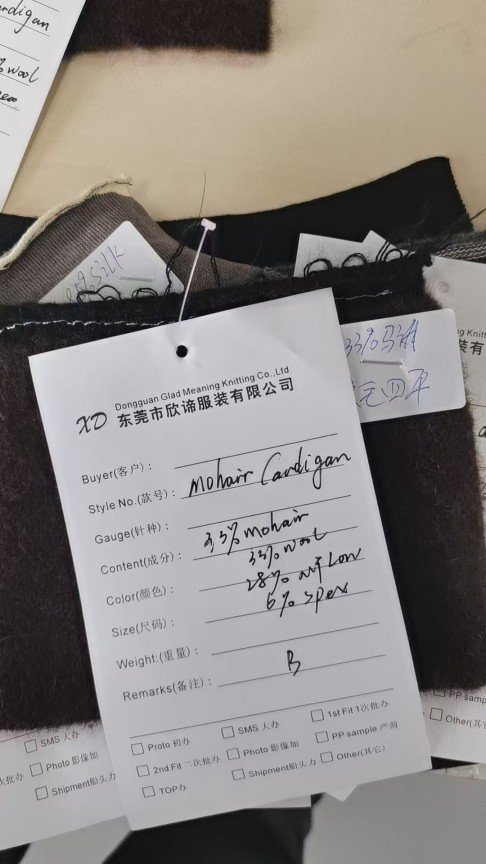 rdigan
% wool
silk
33%马海
元四平
XD
Dongguan Glad Meaning Knitting Co.,Ltd
东莞市欣谛服装有限公司
Buyer(客户):
Style No.(款号): Mohair Cardigan
Gauge(针种):
Content(成分): 33% mohair
33% wool
Color(颜色): 28%
6% spex
Size(尺码):
Weight:(重量):
Remarks(备注): B
Proto 初办
SMS 大办
1st Fit 1次批办
2nd Fit 二次批办
Photo 影像加
PP sample 产前
TOP办
Shipment船头力
Other(其它)
SMS 大办
次批办
Photo 影像加
Shipment船头力
g Knitt
装有
PP samp
Other(其